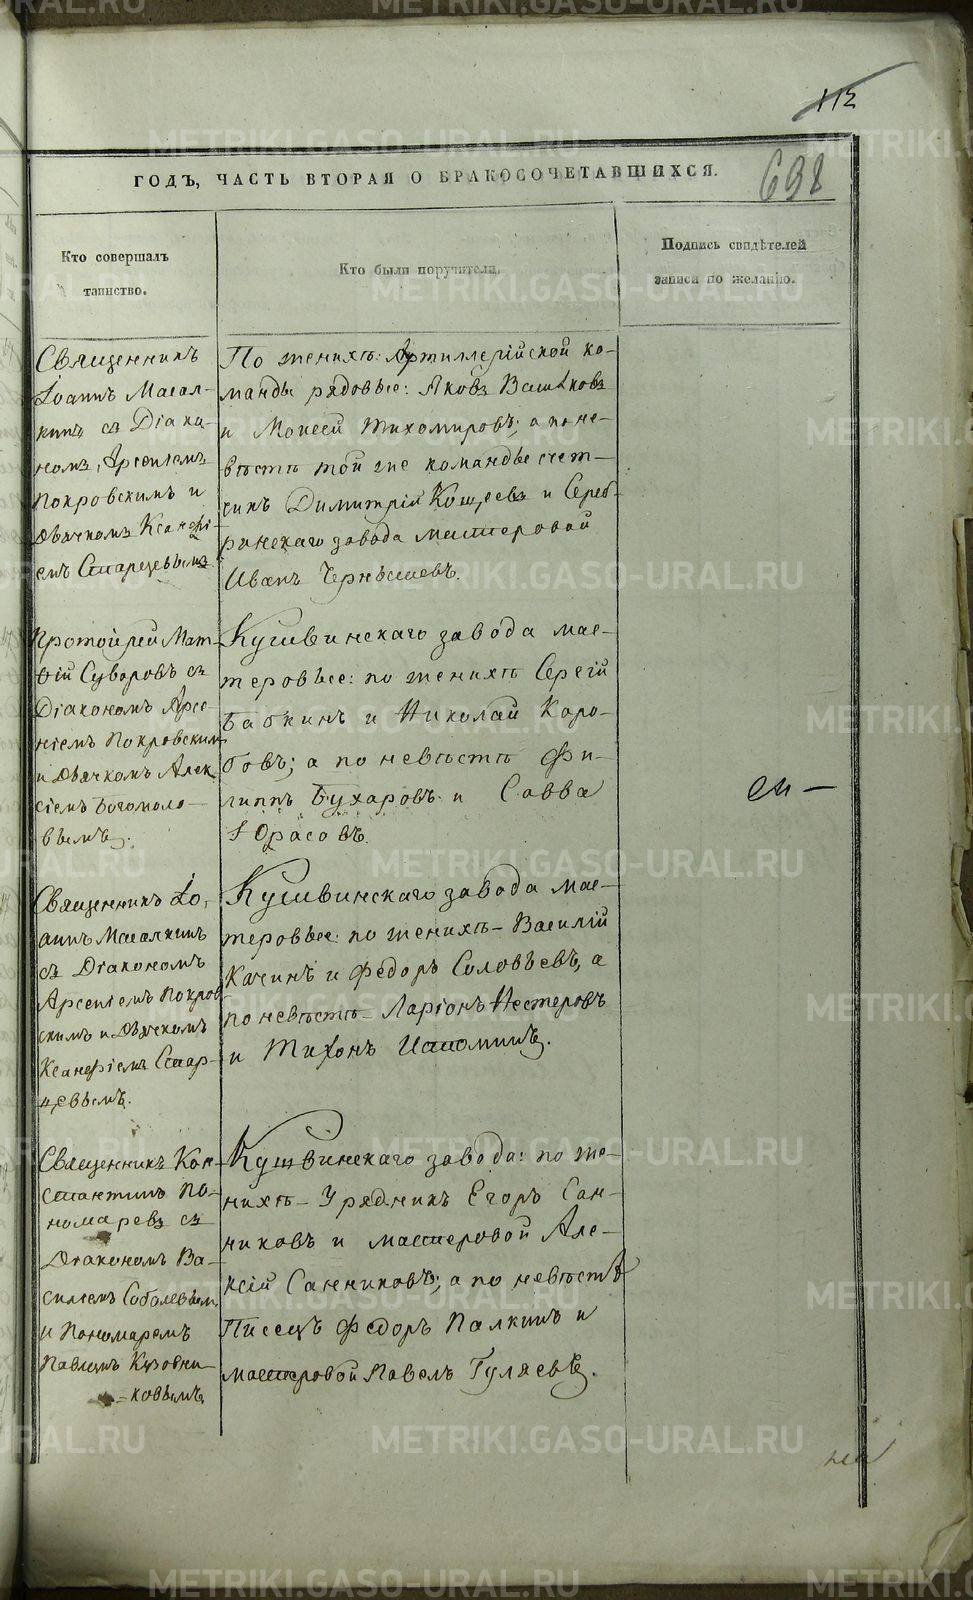 112
698
ГОДЪ, ЧАСТЬ ВТОРАЯ О БРАКОСОЧЕТАВШИХСЯ.
Кто совершалъ
таинство.
Кто были поручители.
Подпись свидѣтелей
записи по желанію.
Священникъ
Іоаннъ Масал-
кинъ съ Діако-
номъ Арсеніемъ
Покровскимъ и
Дьячкомъ Ксанфі-
емъ Старцевымъ
По женихѣ: Артиллерійской ко-
манды рядовые: Яковъ Вашковъ
и Моисей Тихомировъ; а по не-
вѣстѣ той же команды счет-
чикъ Димитрій Кощеевъ и Сереб-
рянскаго завода мастеровой
Иванъ Чернышевъ.
Протоіерей Мат-
ѳій Суворовъ съ
Діакономъ Арсе-
ніемъ Покровским
и Дьячкомъ Алек
сіемъ Богомоло-
вымъ.
Кушвинскаго завода мас-
теровые: по женихѣ Сергій
Бабкинъ и Николай Коро-
бовъ; а по невѣстѣ Фи-
липпъ Бухаровъ и Савва
Юрасовъ.
Священникъ Іо-
аннъ Масалкинъ
съ Діакономъ
Арсеніемъ Покров
скимъ и Дьячкомъ
Ксанфіемъ Стар-
цевымъ.
Кушвинскаго завода мас-
теровые: по женихѣ – Василій
Качинъ и Федоръ Соловьевъ, а
по невѣстѣ – Ларіонъ Нестеровъ
и Тихонъ Истоминъ.
Священникъ Кон-
стантинъ По-
номаревъ съ
Діакономъ Ва-
силіемъ Соболевым
и Пономаремъ
Павломъ Кузовни-
ковымъ
Кушвинскаго завода: по же-
нихѣ – Урядникъ Егоръ Сан-
никовъ и мастеровой Але-
ксій Санниковъ; а по невѣстѣ
Писецъ Федоръ Палкинъ и
мастеровой Павелъ Гуляевъ.
METRIKI.GASO-URAL.RU